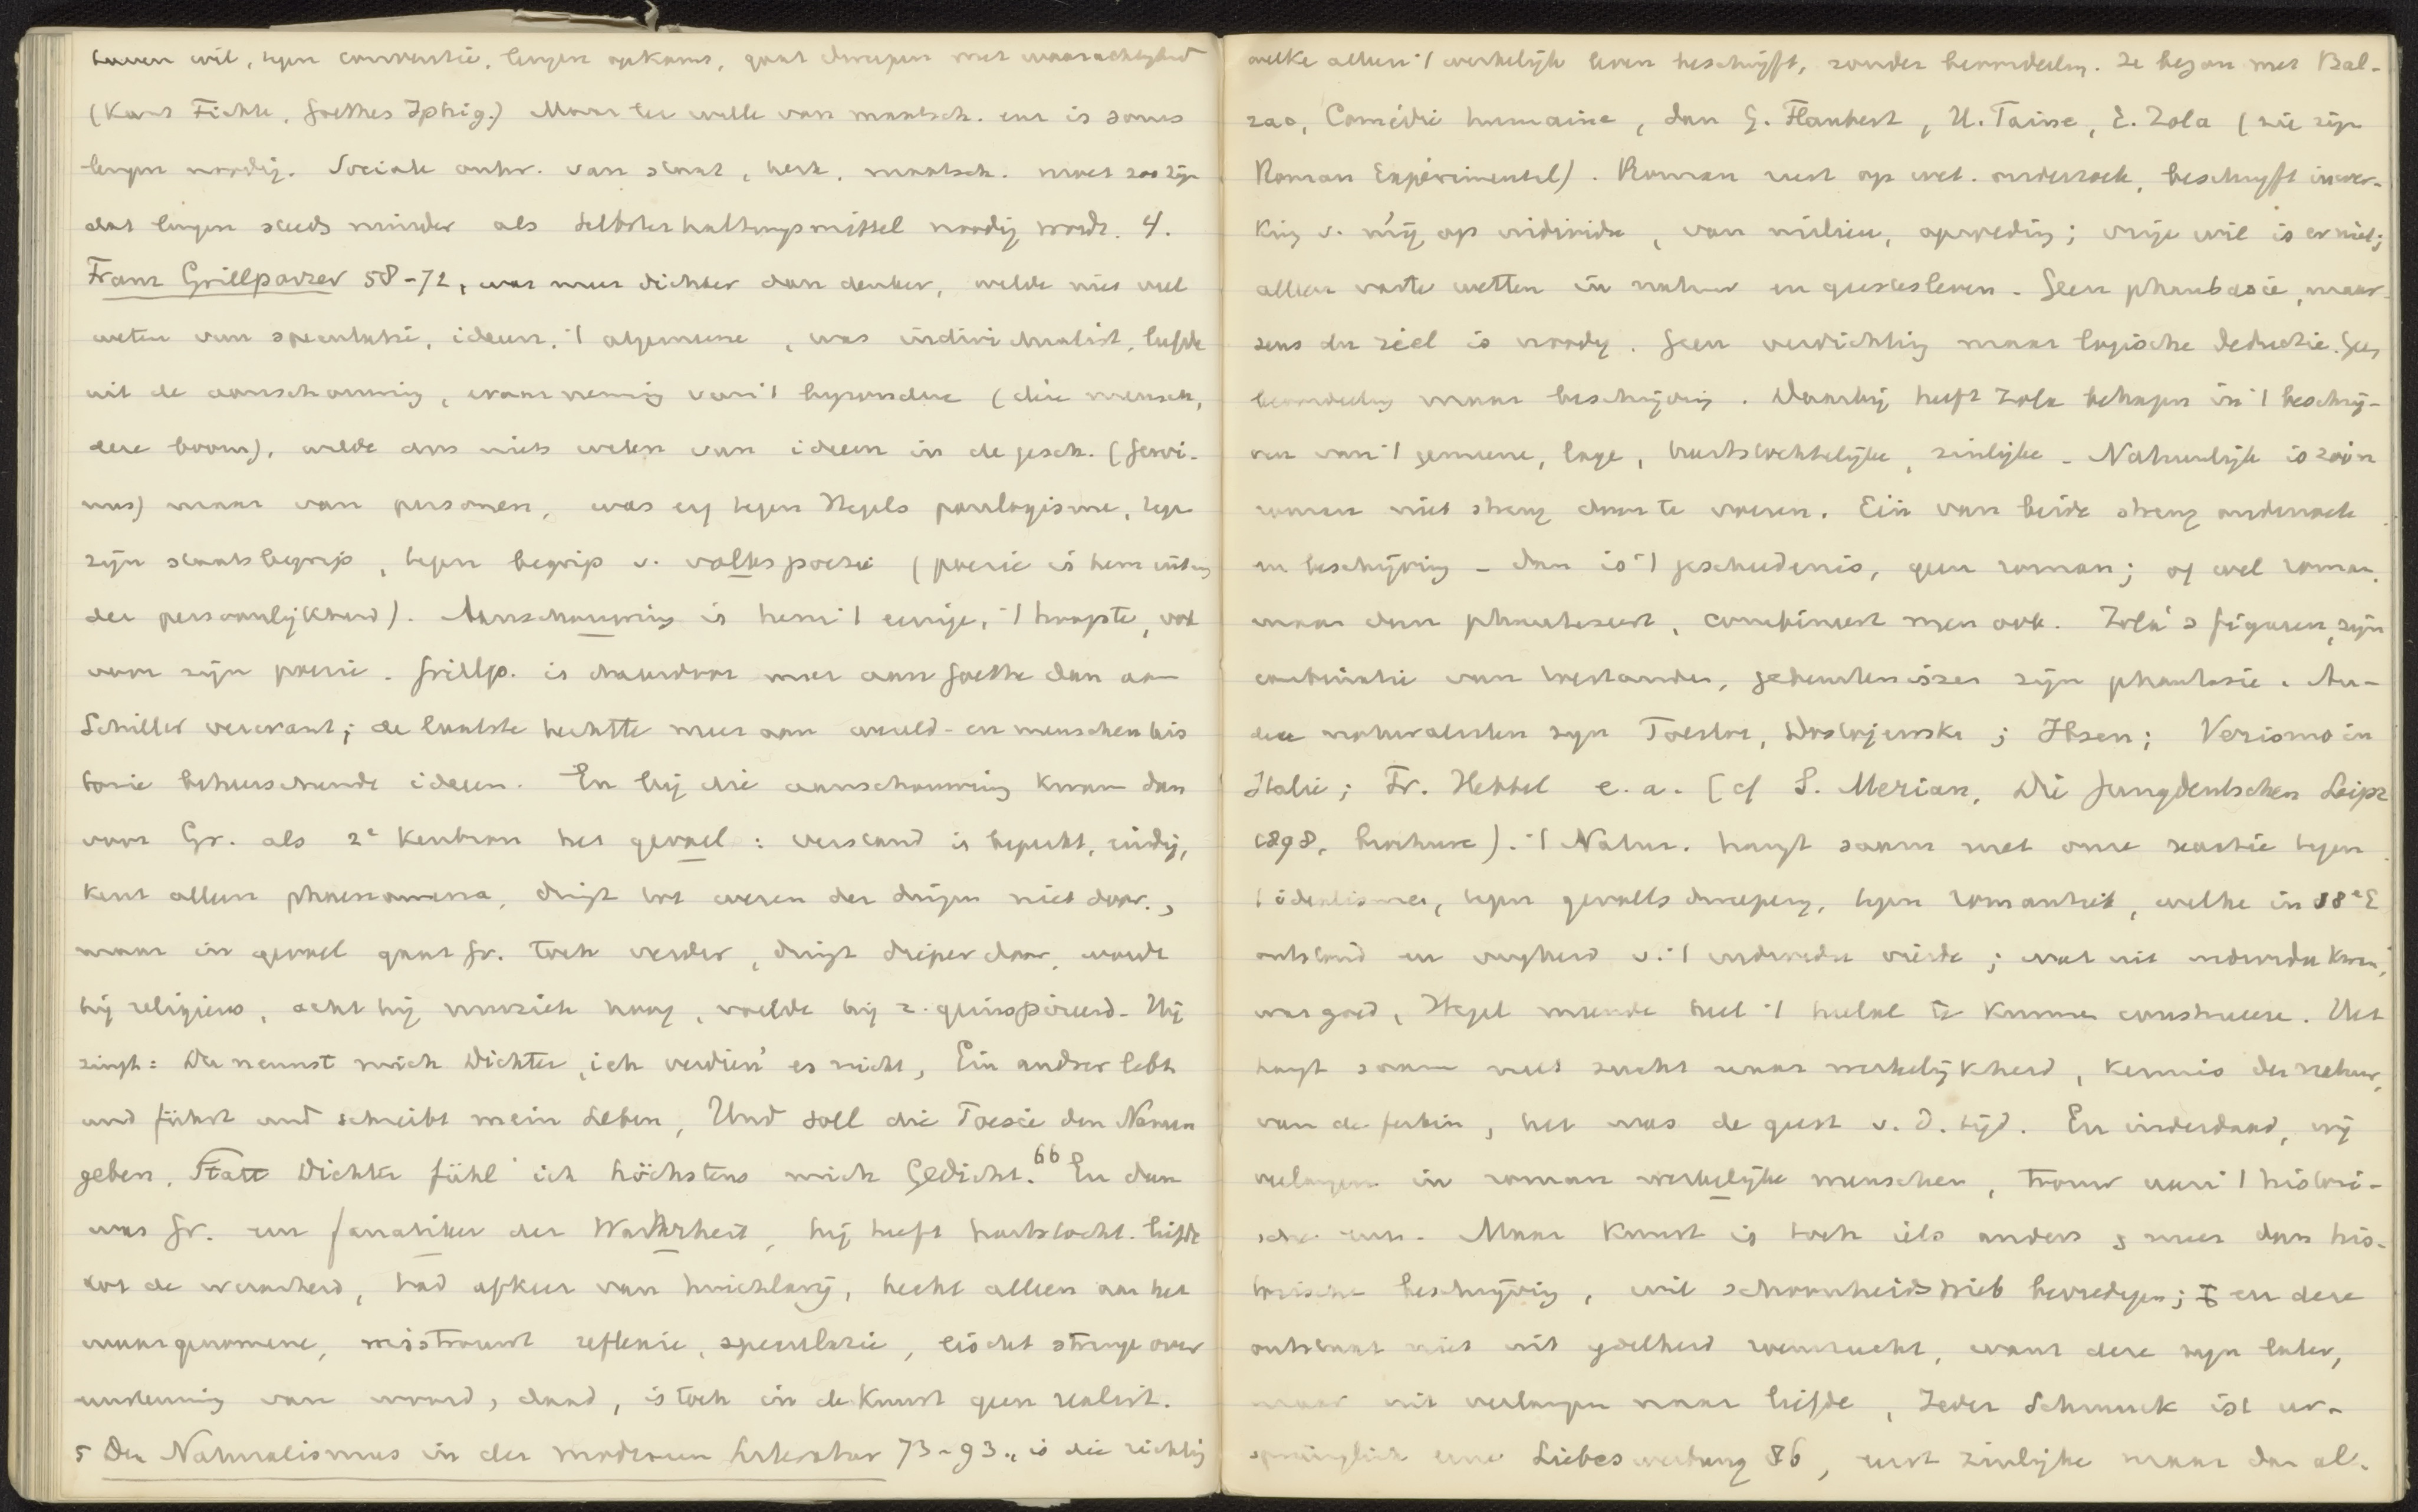 bouwen wil, tegen conventie, leugen opkomt, gaat dweepen met waarachtigheid
(Kant Fichte, Goethes Iphig.) Maar ter wille van maatsch. eer is soms
leugen noodig. Sociale ontw. van staat, kerk, maatsch. moet zoo zijn
dat leugen steeds minder als Selbsterhaltungsmittel noodig wordt. 4.
Franz Grillparzer 58-72, was meer dichter dan denker, wilde niet veel
weten van speculatie, ideeen, 't algemeene, was individualist, leefde
uit de aanschouwing, waarneming van 't byzondere (die mensch,
deze boom), wilde dus niets weten van ideeen in de gesch. (Gervi-
nus) maar van personen, was erg tegen Hegels panlogisme, tegen
zijn staatsbegrip, tegen begrip v. volkspoezie (poezie is hem uiting
der persoonlijkheid). Aanschouwing is hem 't eenige, 't hoogste, ook
voor zijn poezie. Grillp. is daardoor meer aan Goethe dan aan
Schiller verwant; de laatste hechtte meer aan wereld- en menschenhis
torie beheerschende ideeen. En bij die aanschouwing kwam dan
voor Gr. als 2e kenbron het gevoel: verstand is beperkt, eindig,
kent alleen phaenomena, dringt tot wezen der dingen niet door,
maar in gevoel gaat Gr. toch verder, dringt dieper door, wordt
hij religieus, acht hij muziek hoog, voelde hij z. geinspireerd. Hij
zingt: Du nennst mich Dichter, ich verdien' es nicht, Ein andrer lebt
und fühlt und schreibt mein Leben, Und soll die Poesie den Namen
geben, Statt Dichter fühl' ich höchstens mich Gedicht. 66 En dan
was Gr. een fanatiker der Wahrheit, hij heeft hartstocht. liefde
tot de waarheid, had afkeer van huichlarij, hecht alleen aan het
waargenomene, mistrouwt reflexie, speculatie, eischt strenge over
eenstemming van woord, daad, is toch in de kunst geen realist.
5 Der Naturalismus in der modernen Literatur 73-93., is die richting
welke alleen 't werkelijk leven beschrijft, zonder beoordeeling. Ze begon met Bal-
zac, Comédie humaine, dan G. Flaubert, H. Taine, E. Zola (zie zijn
Roman Expérimental). Roman rust op wet. onderzoek, beschrijft inwer-
king v. mij op individu, van milieu, opvoeding; vrije wil is er niet;
alleen vaste wetten in natuur en geestesleven. Geen phantasie, maar
sens du réel is noodig. Geen verdichting maar logische deductie. Geen
beoordeeling maar beschrijving. Daarbij heeft Zola behagen in 't beschrij-
ven van 't gemeene, lage, hartstochtelijke, zinlijke. Natuurlijk is zoo'n
roman niet streng door te voeren. Eén van beide streng onderzoek
en beschrijving - dan is 't geschiedenis, geen roman; of wel roman,
maar dan phantaseert, combineert men ook. Zola's figuren zijn
combinatie van toestanden, gebeurtenissen zijn phantasie. An-
dere naturalisten zyn Tolstoi, Dostojewski; Ibsen; Verismo in
Italie; Fr. Hebbel e. a. [cf S. Merian, Die Jungdeutschen Leipz
1898, brochure). 't Natur. hangt samen met onze reactie tegen
't idealisme, tegen gevoelsdweepery, tegen romantiek, welke in 18e E
ontstond en vryheid v. 't individu vierde; wat uit individu kwam,
was goed, Hegel meende heel 't heelal te kunnen construeeren. Het
hangt samen met zucht naar werkelijkheid, kennis der natuur,
van de feiten, het was de geest v. d. tijd. En inderdaad, wij
verlangen in roman werkelijke menschen, trouw aan 't histori-
sche enz. Maar kunst is toch iets anders, meer dan his-
torische beschrijving, wil schoonheidsdrieb bevredigen; en deze
ontstaat niet uit ydelheid, want deze zyn later,
maar uit verlangen naar liefde, Jeder Schmuck ist ur-
sprünglich eine Liebeswerbung 86, eerst zinlijke maar dan al-